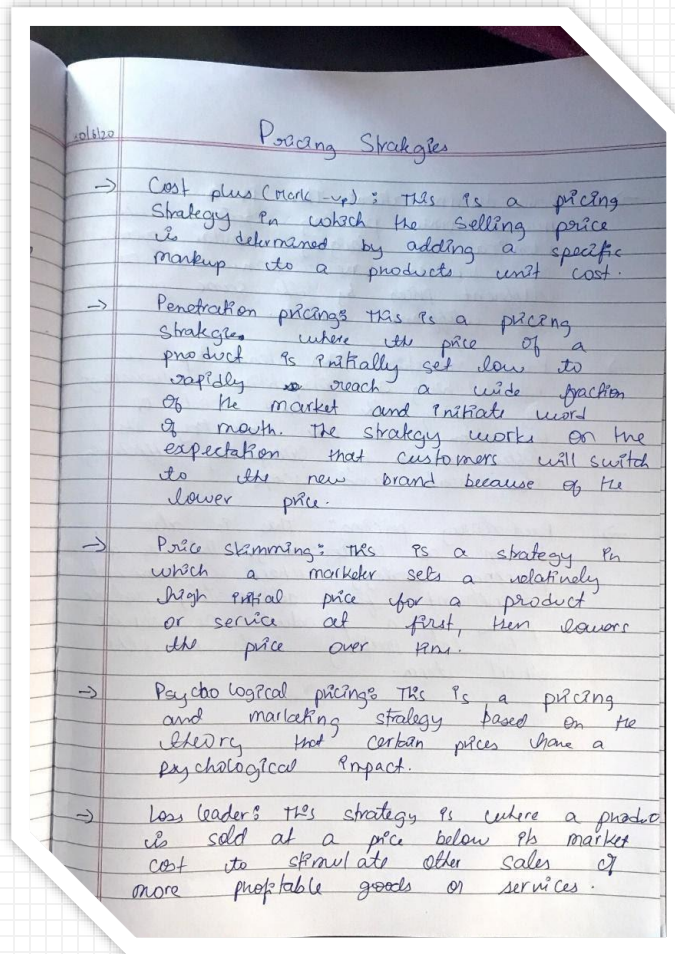 Pricing Strategies
→ Cost plus (Mark-up) : This is a pricing
Strategy in which the selling price
is determined by adding a specific
markup to a products unit cost.
→ Penetration pricing: This is a pricing
strategies where the price of a
product is initially set low to
rapidly reach a wide fraction
of the market and initiate word
of mouth. The strategy works on the
expectation that customers will switch
to the new brand because of the
lower price.
→ Price skimming: This is a strategy in
which a marketer sets a relatively
high initial price for a product
or service at first, then lowers
the price over time.
→ Psychological pricing: This is a pricing
and marketing strategy based on the
theory that certain prices have a
psychological impact.
→ Loss leader: This strategy is where a product
is sold at a price below its market
cost to stimulate other sales of
more profitable goods or services.